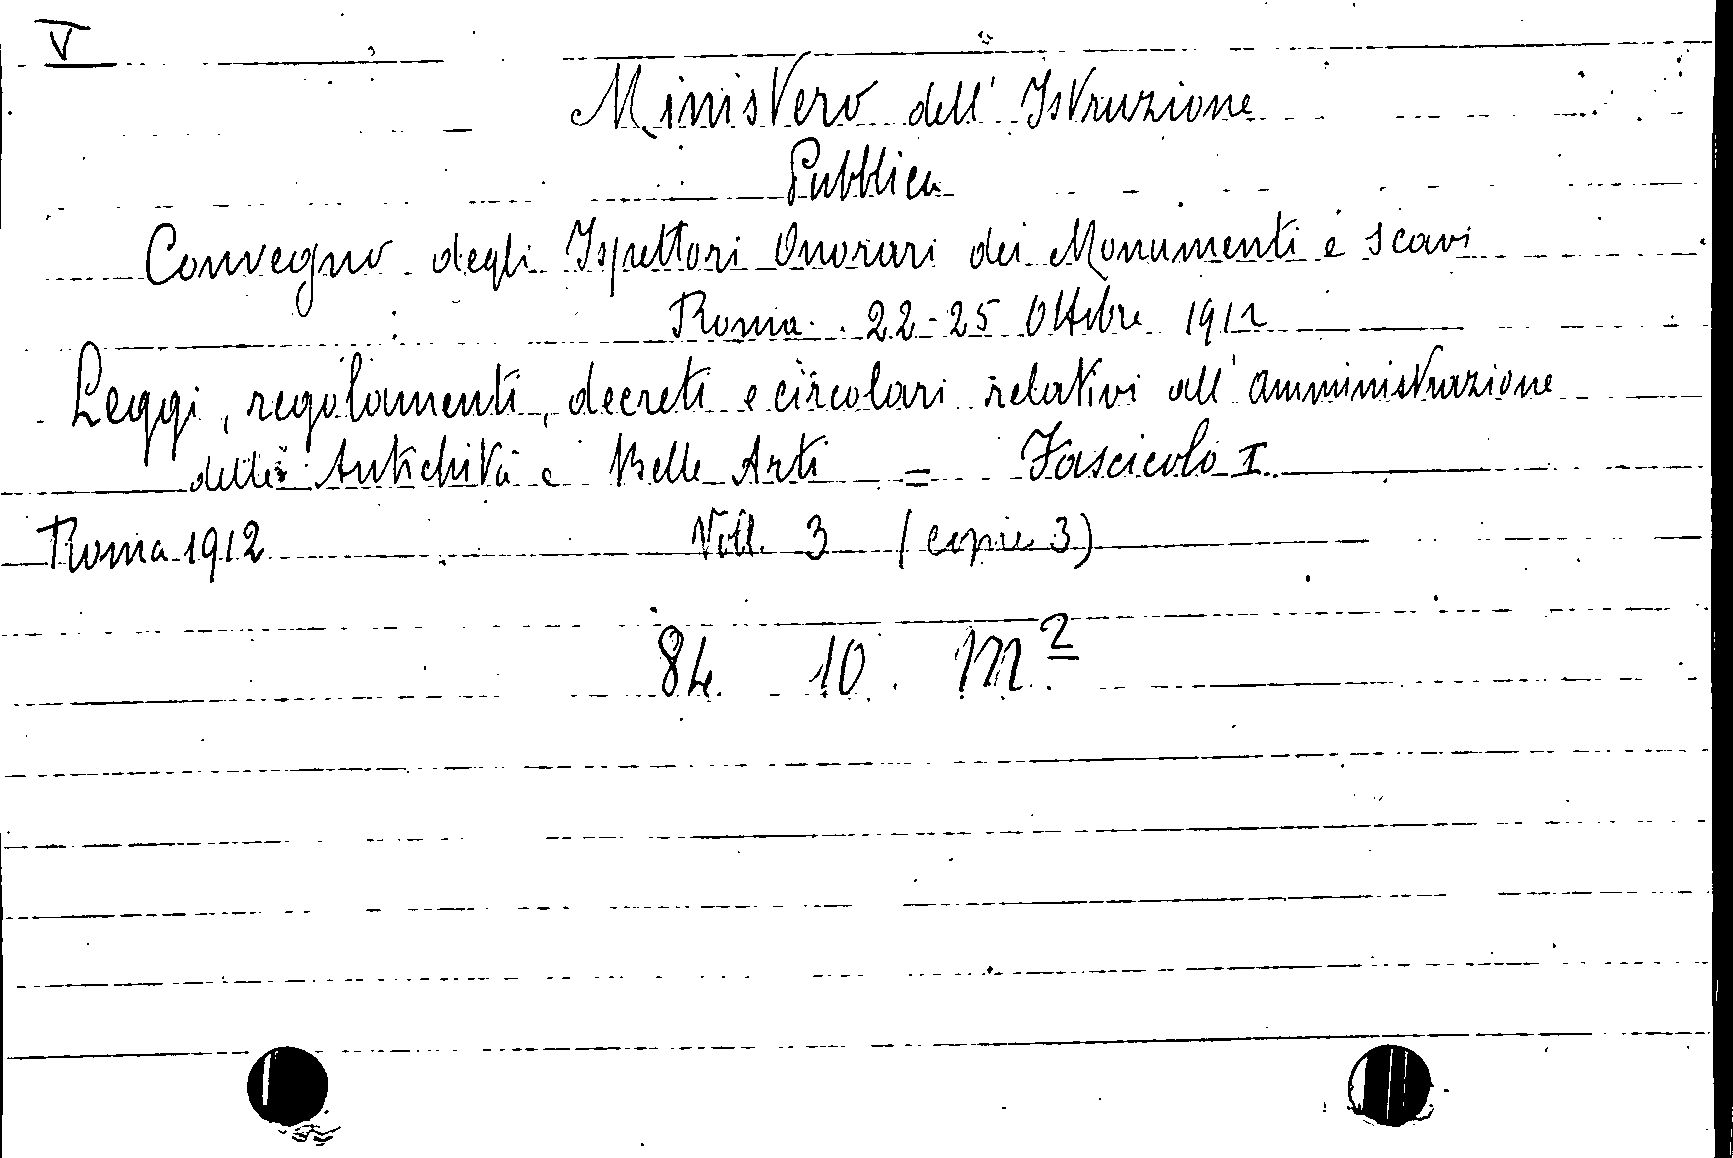 V
Ministero dell'Istruzione
Pubblica
Convegno degli Ispettori Onorari dei Monumenti e scavi
Roma. 22-25 Ottobre 1912
Leggi, regolamenti, decreti e circolari relativi all'amministrazione
delle Antichità e Belle Arti = Fascicolo I
Roma 1912 Voll. 3 (copie 3)
84. 10. M2